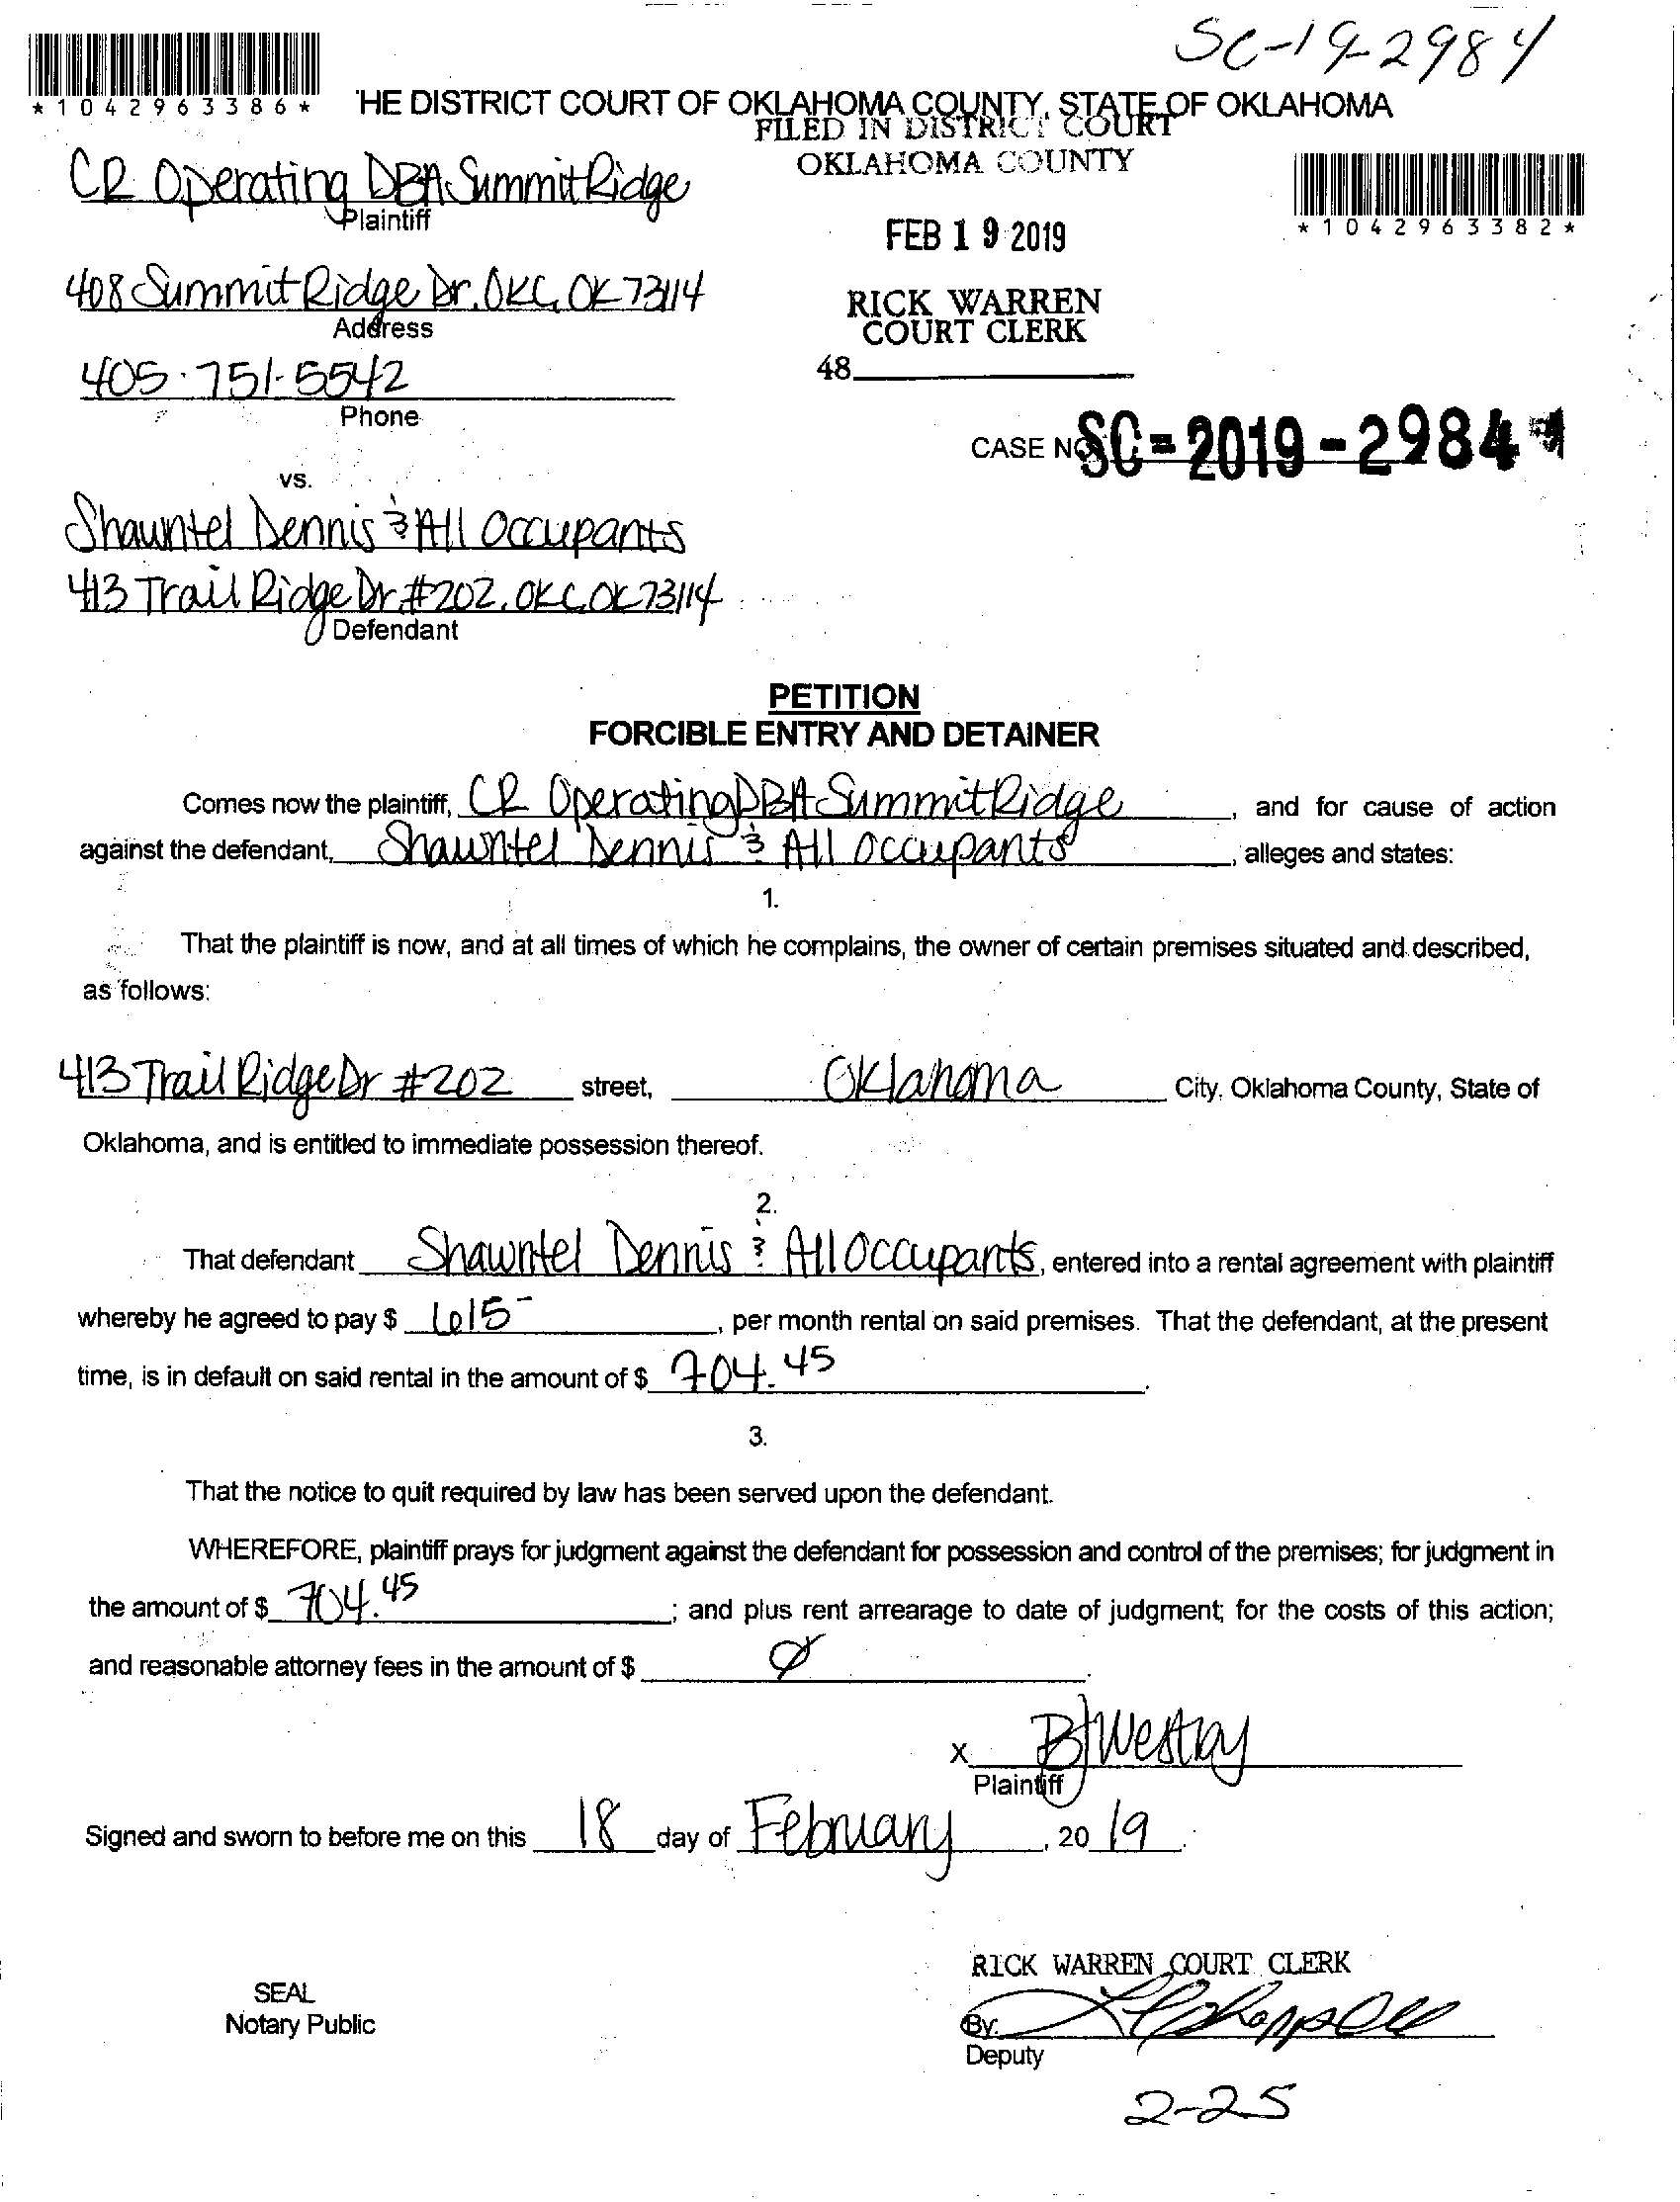 SC-19-2984
*1042963386*
'HE DISTRICT COURT OF OKLAHOMA COUNTY, STATE OF OKLAHOMA
FILED IN DISTRICT COURT
OKLAHOMA COUNTY
CR Operating DBA Summit Ridge
Plaintiff
*1042963382*
FEB 19 2019
408 Summit Ridge Dr. OKC, OK 73114
Address
RICK WARREN
COURT CLERK
405-751-5542
Phone
48
CASE NO SC-2019-2984
vs.
Shauntel Dennis & All Occupants
413 Trail Ridge Dr #202, OKC OK 73114
Defendant
PETITION
FORCIBLE ENTRY AND DETAINER
Comes now the plaintiff, CR Operating DBA Summit Ridge, and for cause of action
against the defendant, Shawntel Dennis & All Occupants, alleges and states:
1.
That the plaintiff is now, and at all times of which he complains, the owner of certain premises situated and described,
as follows:
413 Trail Ridge Dr #202 street, Oklahoma City, Oklahoma County, State of
Oklahoma, and is entitled to immediate possession thereof.
2.
That defendant Shawntel Dennis & All Occupants, entered into a rental agreement with plaintiff
whereby he agreed to pay $ 615-, per month rental on said premises. That the defendant, at the present
time, is in default on said rental in the amount of $ 704.45.
3.
That the notice to quit required by law has been served upon the defendant.
WHEREFORE, plaintiff prays for judgment against the defendant for possession and control of the premises; for judgment in
the amount of $ 704.45; and plus rent arrearage to date of judgment; for the costs of this action;
and reasonable attorney fees in the amount of $ Ø.
X
Plaintiff
Signed and sworn to before me on this 18 day of February, 2019.
RICK WARREN COURT CLERK
SEAL
Notary Public
By:
Deputy
2-25